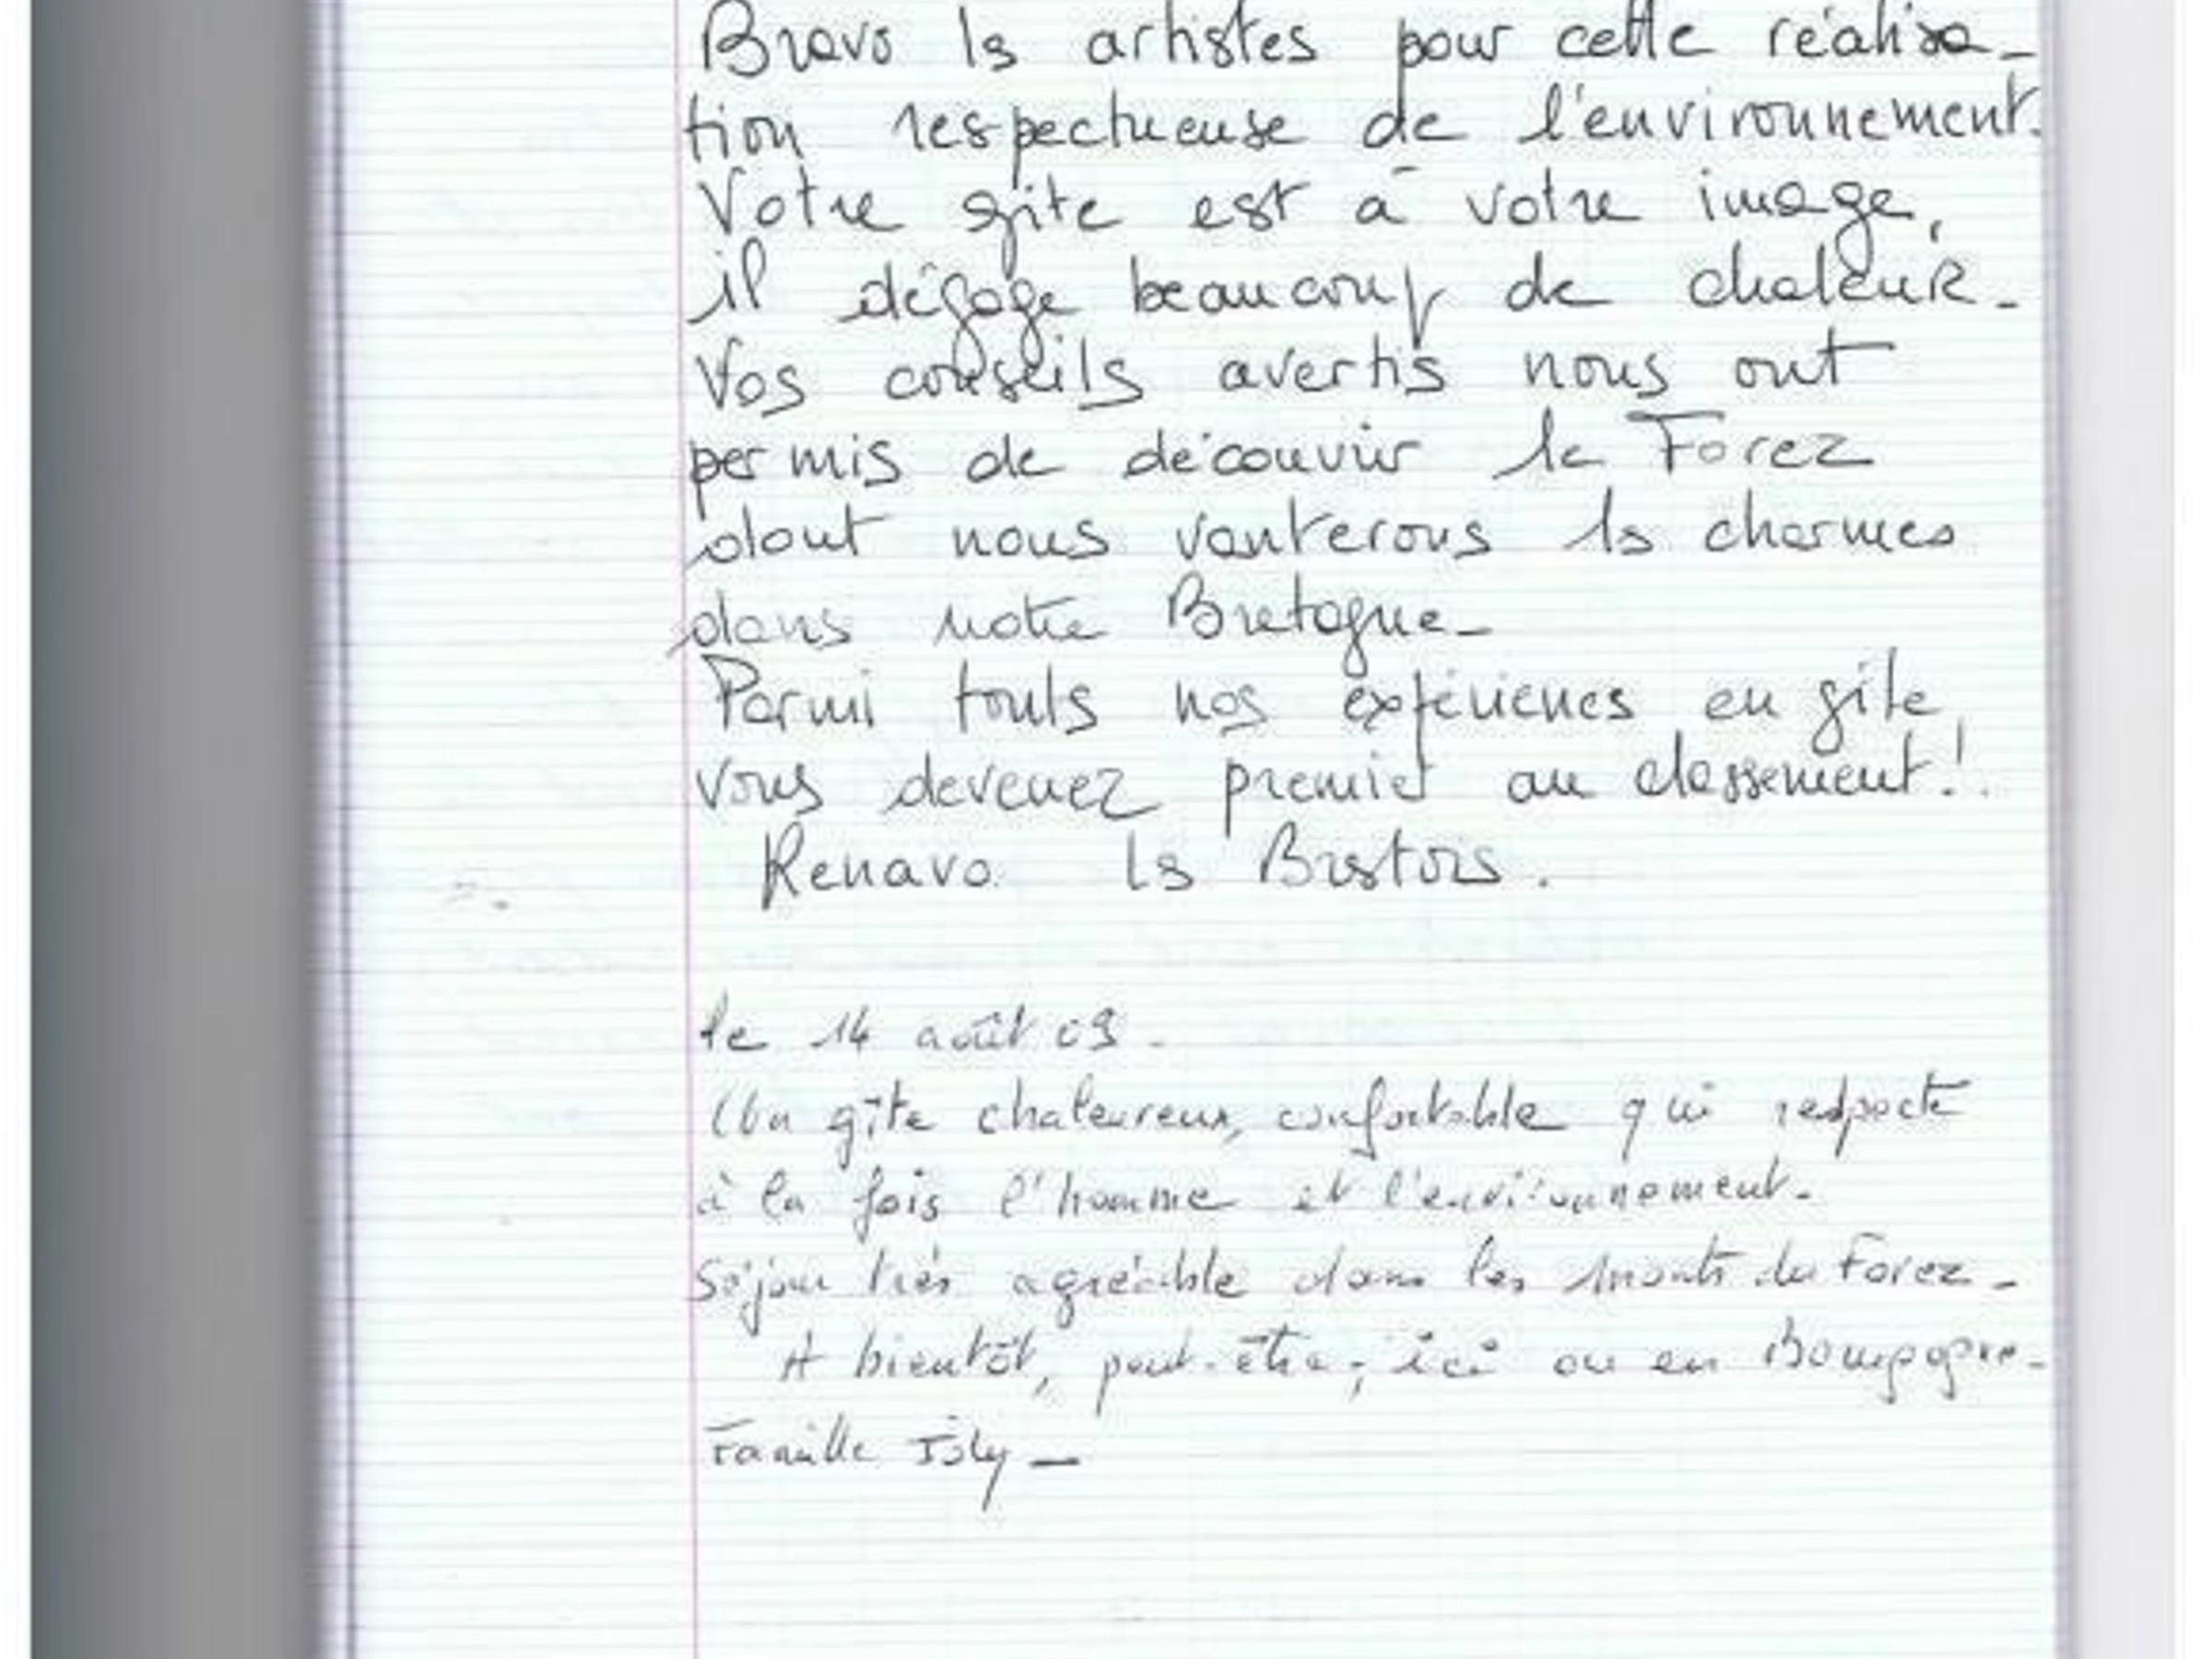 Bravo les artistes pour cette réalisa-
tion respectueuse de l'environnement.
Votre gite est à votre image,
il dégage beaucoup de chaleur-
Vos conseils avertis nous ont
permis de découvrir le Forez
dont nous vanterons les charmes
dans notre Bretagne-
Parmi toutes nos expériences en gite,
vous devenez premier au classement!
Kenavo. les
le 14 août 09.
Un gîte chaleureux, confortable qui respecte
à la fois l'homme et l'environnement-
Séjour très agréable dans les monts du Forez-
A bientôt, peut-être, ici ou en Bourgogne-
Famille